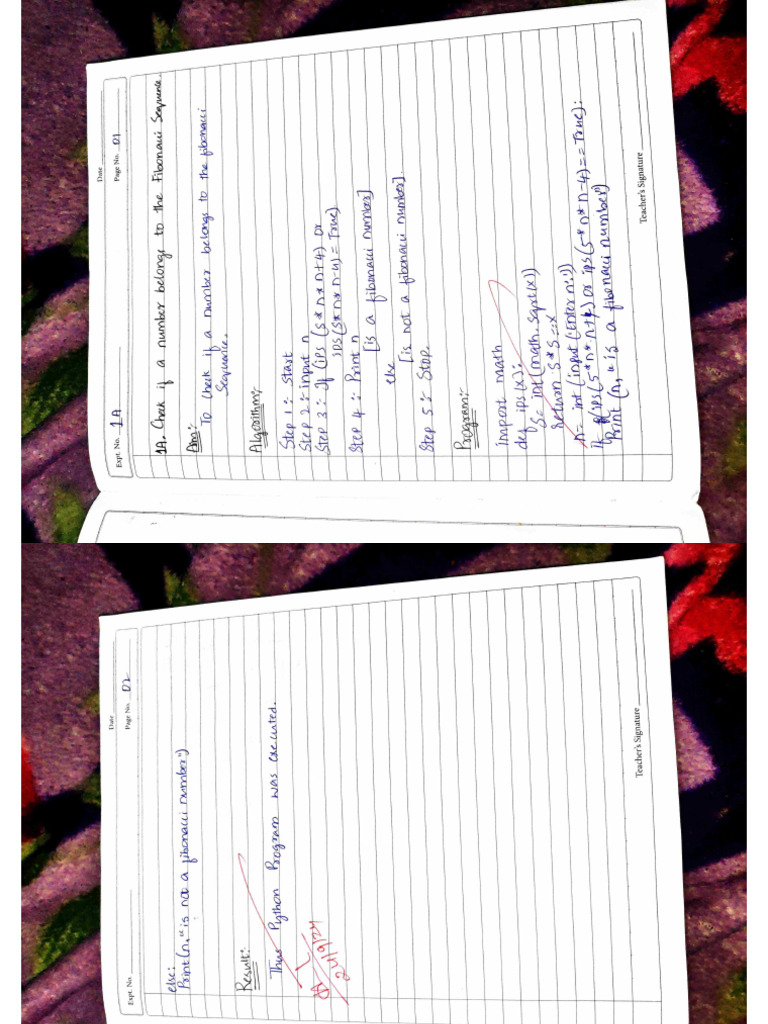 Expt. No. 1A
Date
Page No. 01
1A. Check if a number belongs to the Fibonacci Sequence.
Aim:
To Check if a number belongs to the fibonacci
Sequence.
Algorithm:
Step 1: Start
Step 2: input n
Step 3: If (ips (5*n*n+4) or
ips(5*n*n-4)=True)
Step 4: Print n
[is a fibonacci number]
else [is not a fibonacci number].
Step 5: Stop.
Program:
import math
def ips(x):
S= int(math.sqrt(x))
Return S*S==x
n= int(input('Enter n:'))
If (ips(5*n*n+4) or ips(5*n*n-4)==True):
Print (n, "is a fibonacci number)
Teacher's Signature
Expt. No.
Date
Page No. 02
else:
Print(n, "is not a fibonacci number")
Result:
Thus Python Program was executed.
Teacher's Signature